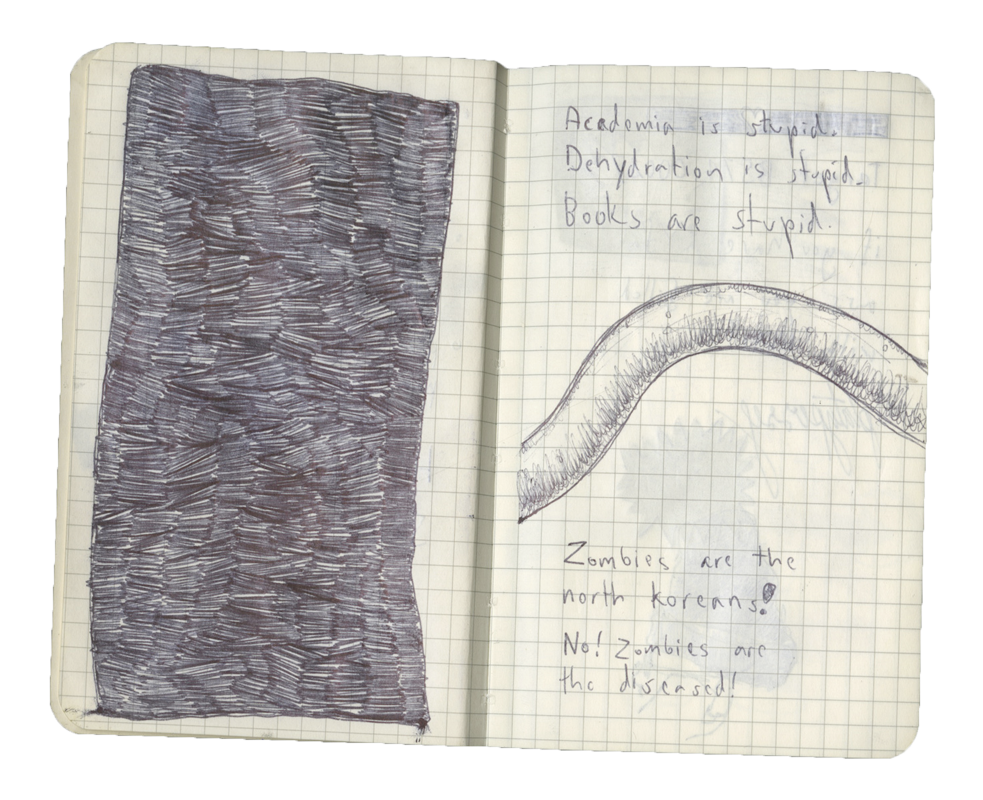 Academia is stupid.
Dehydration is stupid.
Books are stupid.
Zombies are the
north koreans!
No! Zombies are
the diseased!